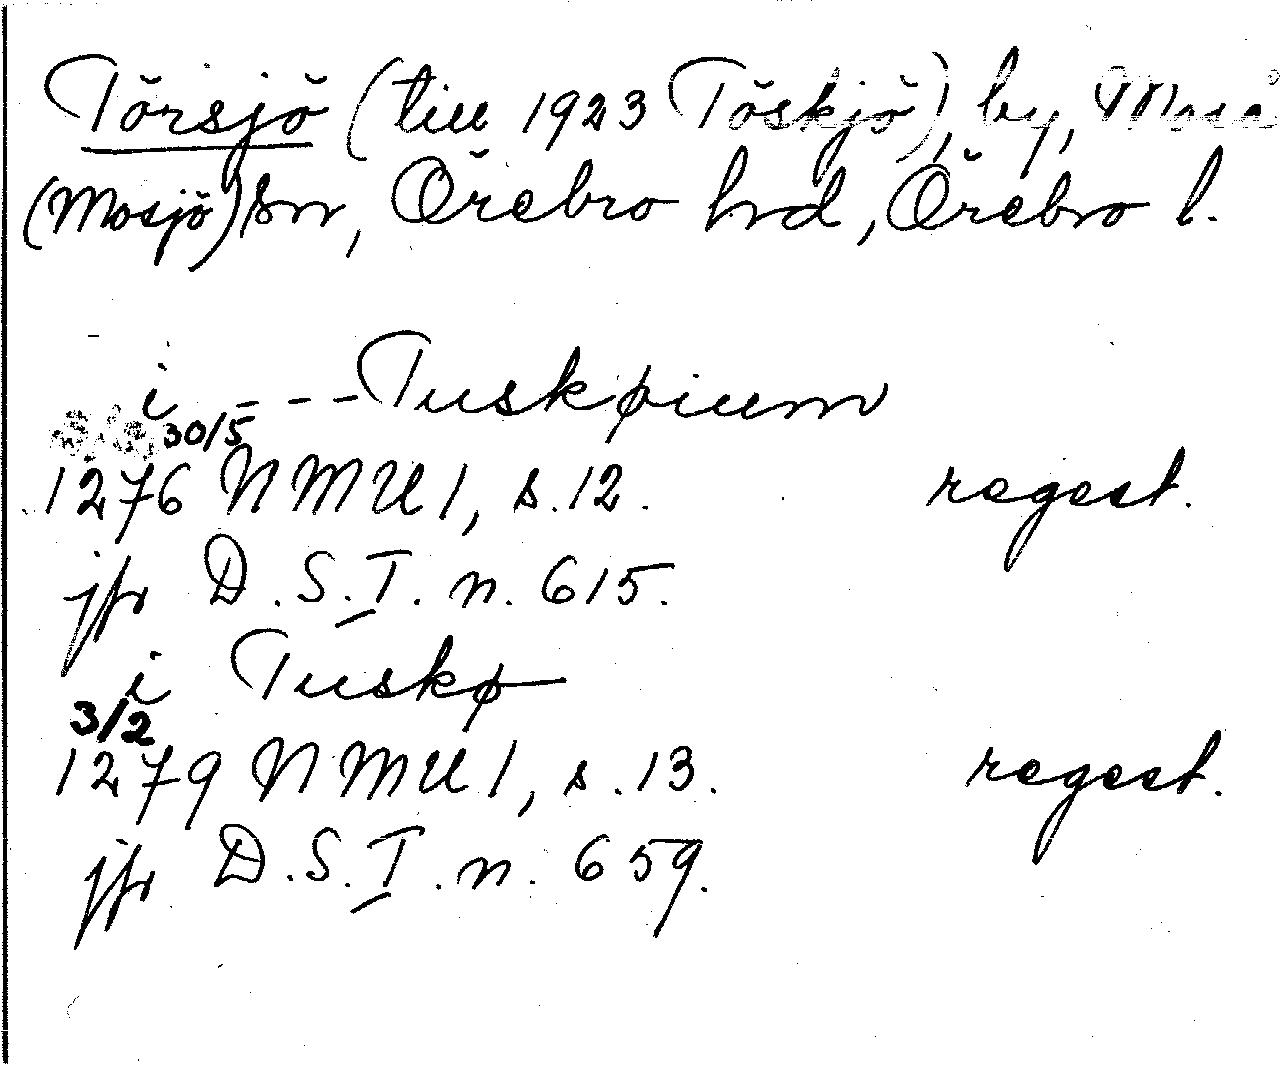 Törsjö (till 1923 Töskjö), by, Moså
(Mosjö) sn, Örebro hrd, Örebro l.
i - - - Tuskøium
30/5
1276 NMU 1, s. 12. regest.
jfr D.S.I. n. 615.
i Tuskø
3/2
1279 NMU 1, s. 13. regest.
jfr D.S.I. n. 659.